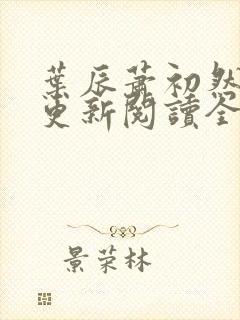 葉辰蕭初然
更新閱讀全
景荣林